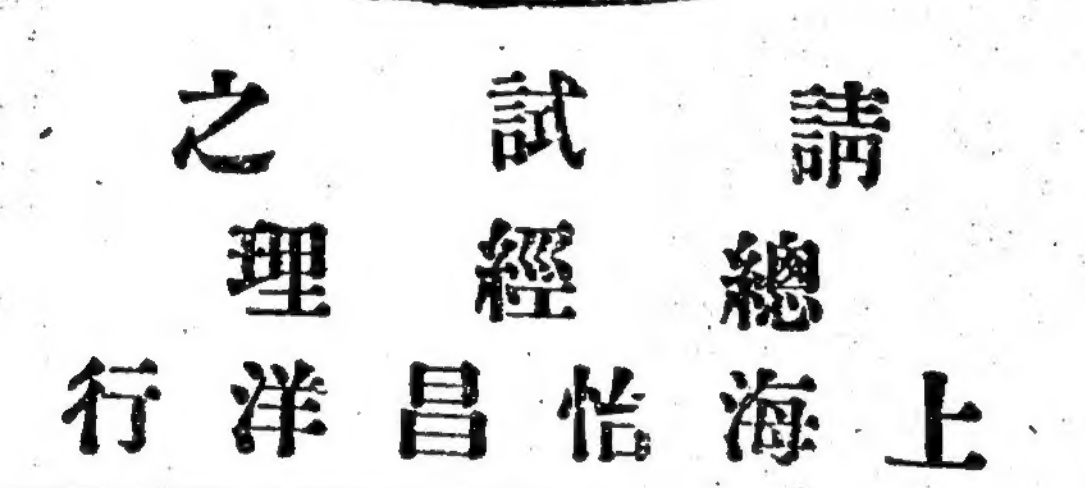 請試之
總經理
上海怡昌洋行